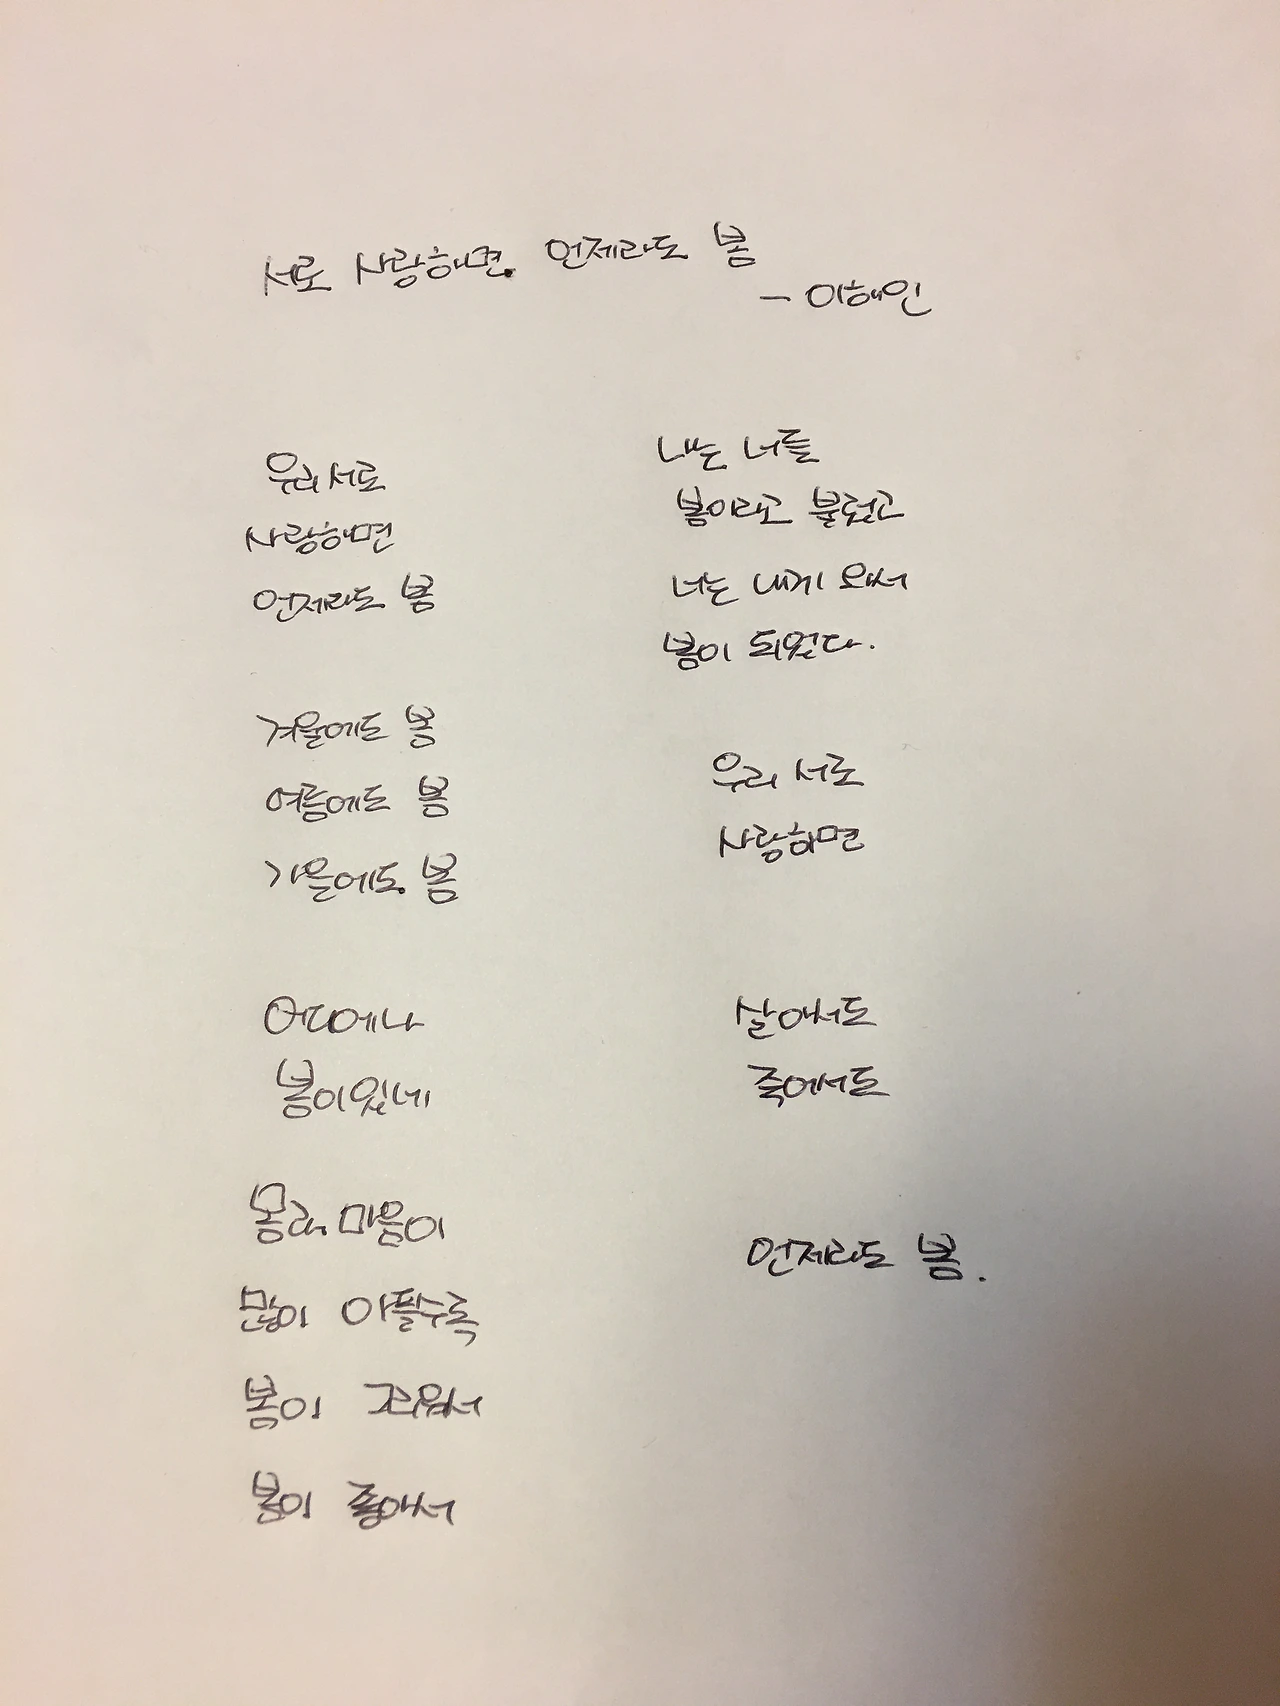 서로 사랑하면 언제라도 봄
- 이해인
우리 서로
사랑하면
언제라도 봄
겨울에도 봄
여름에도 봄
가을에도 봄
어디에나
봄이있네
몸과 마음이
많이 아플수록
봄이 그리워서
봄이 좋아서
나는 너를
봄이라고 불렀고
너는 내게 와서
봄이 되었다.
우리 서로
사랑하면
살아서도
죽어서도
언제라도 봄.